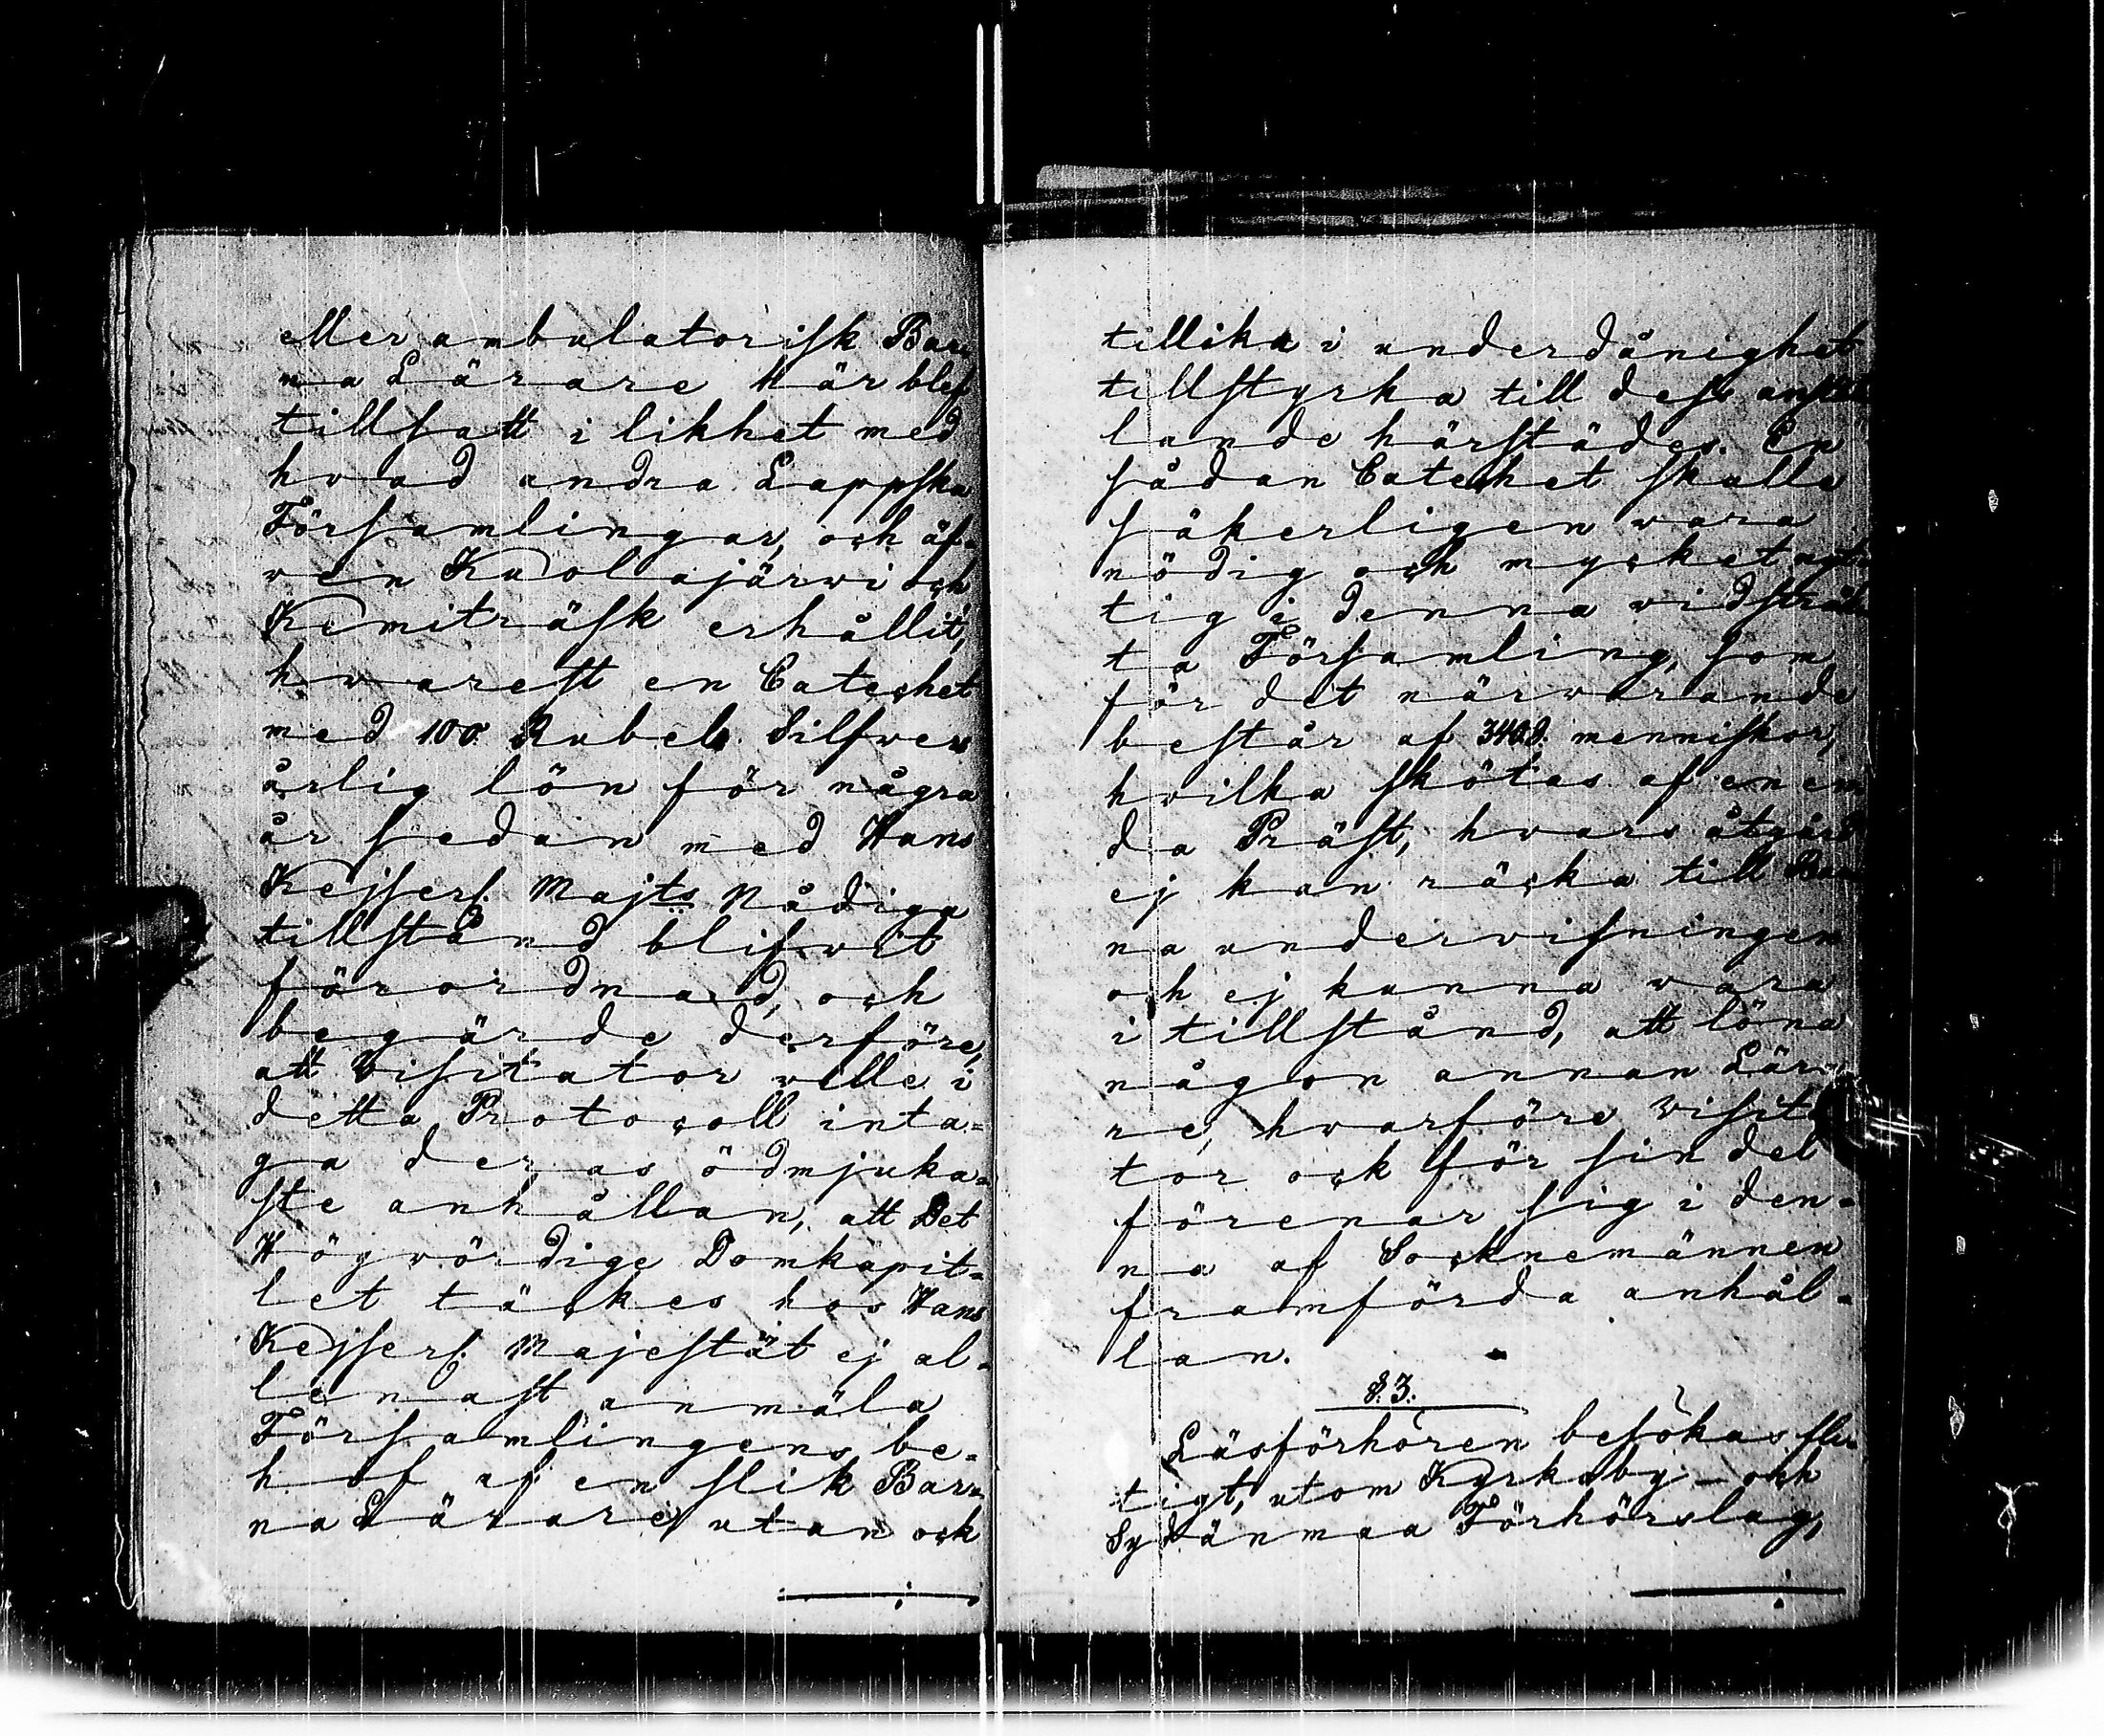 eller ambulatorisk Bar-
na Lärare här blef
tillsatt i likhet med
hvad andra Lappska
Församlingar, och äf-
ven Kuolajärwi och
Kemiträsk erhållit,
hvarest en Catechet
med 100 Rubels Silfver
årlig lön för några
år sedan med Hans
Kejserl. Majts Nådiga
tillstånd blifvit
förordnad, och
begärde derföre,
att Visitator ville i
detta Protocoll inta-
ga deras ödmjuka-
ste anhållan, att Det
Högvördige Domkapit-
let täckes hos Hans
Kejserl. Majestät ej al-
lenast anmäla
Församlingens be-
hof af en slik Bar-
na Lärare, utan ock
tillika i underdånighet
tillstyrka till dess anstäl-
lande härstädes. En
sådan Catechet skulle
säkerligen vara
nödig och mycket nyt-
tig i denna vidsträk-
ta Församling, som
för det närvarande
består af 3408 menniskor,
hvilka skötas af en en-
da Präst, hvars åtgärd
ej kan räcka till Bar-
na undervisningen
och ej kunna vara
i tillstånd, att löna
någon annan Lära-
re, hvarföre Visita-
tor ock för sin del
förenar sig i den-
na af Socknemännen
framförda anhål-
lan.
§.3.
Läsförhören besökas fli-
tigt, utom Kyrkoby- och
Sydänmaa Förhörslag,